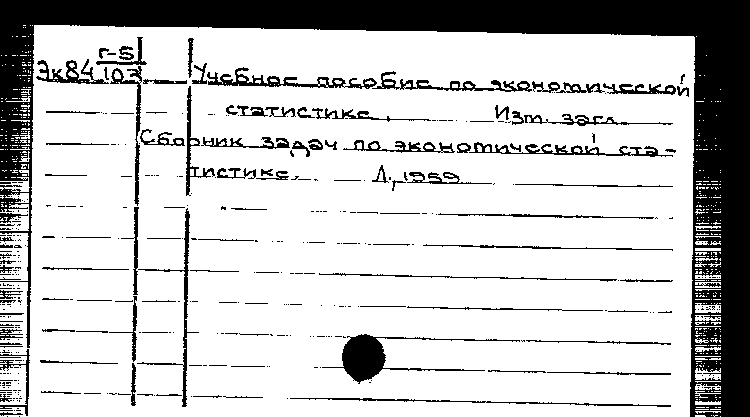 г-5
Эк84 103 Учебное пособие по экономической
статистике. Изм. загл.
Сборник задач по экономической ста-
тистике. Л., 1959